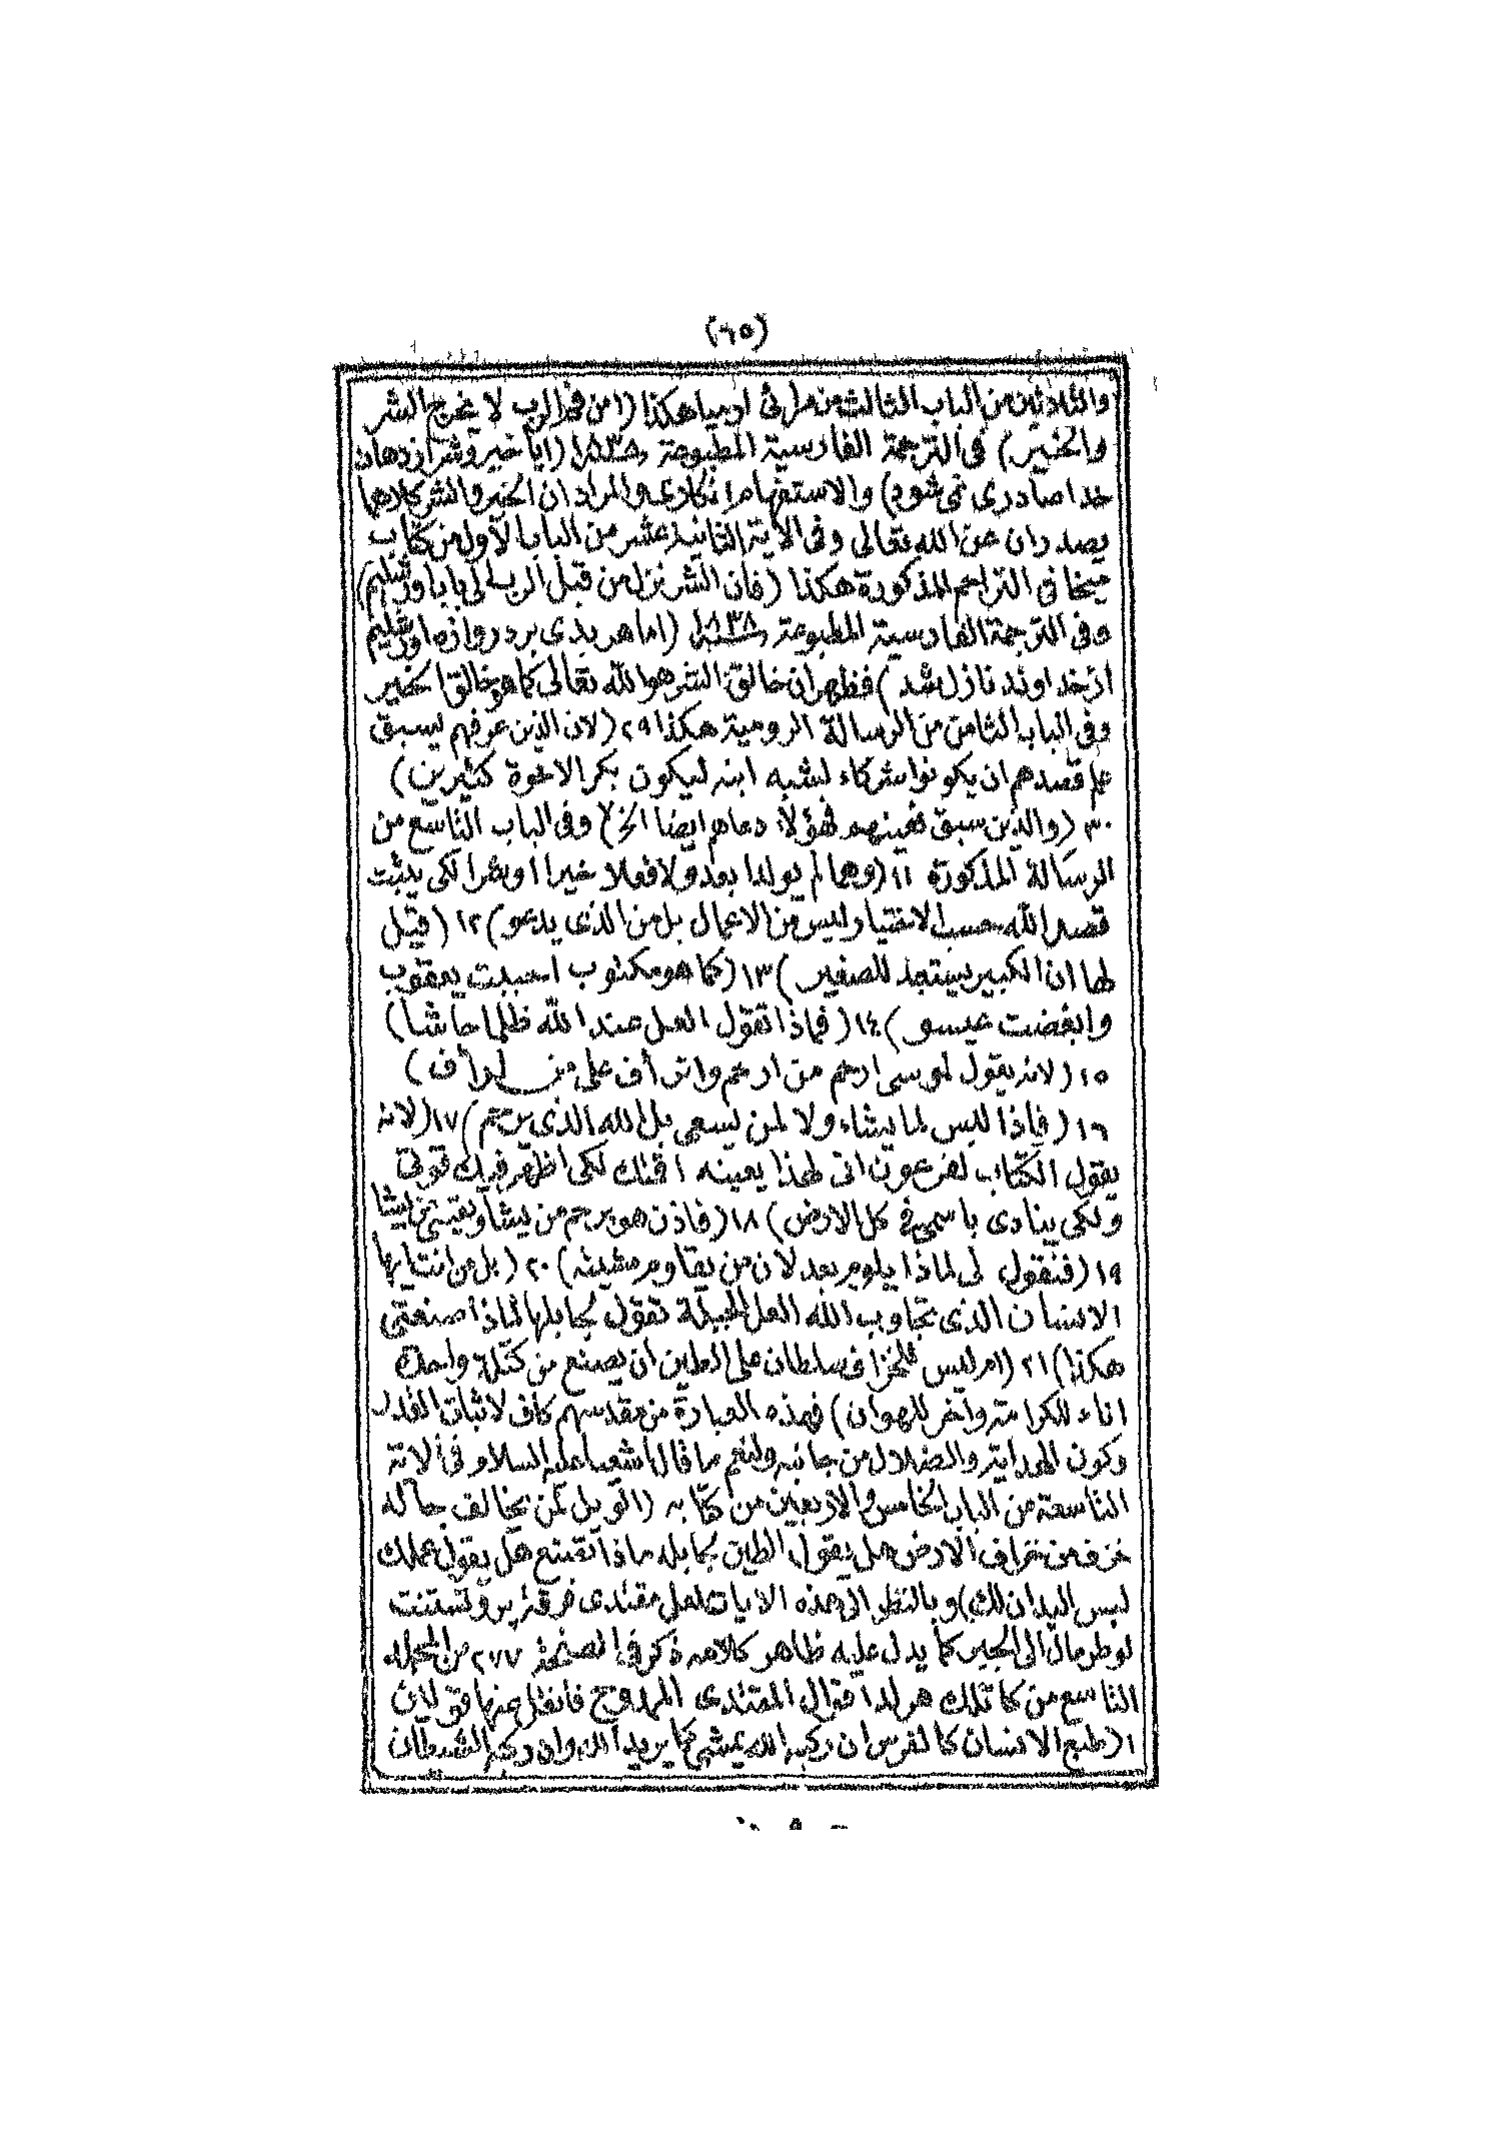 (٦٥)
والثلاثين من الباب الثالث من مراثى ارميا هكذا (امن فم الرب لا يخرج الشر
والخير) فى الترجمة الفارسية المطبوعة سنه ١٨٣٨ (ايا خير وشر از دهان
خدا صادر نمى شود) والاستفهام انكارى والمراد ان الخير والشر كلاهما
يصدران عن الله تعالى وفى الاية الثانية عشر من الباب الاول من كتاب
ميخا فى التراجم المذكورة هكذا (فان الشر نزل من قبل الرب الى باب اورشليم)
وفى الترجمة الفارسية المطبوعة سنه ١٨٣٨ (اما هر بدى بر دروازه اورشليم
از خداوند نازل شد) فظهر ان خالق الشر هو الله تعالى كما هو خالق الخير
وفى الباب الثامن من الرسالة الرومية هكذا ٢٩ (لان الذين عرفهم بسبق
علم قصدهم ان يكونوا شركاء لشبه ابنه ليكون بكر الاخوة كثيرين)
٣٠ (والذين سبق فعينهم فهؤلاء دعاهم ايضا الخ) وفى الباب التاسع من
الرسالة المذكورة ١١ (وهما لم يولدا بعد ولا فعلا خيرا او شرا لكى يثبت
قصد الله حسب الاختيار ليس من الاعمال بل من الذى يدعو) ١٢ (قيل
لها ان الكبير يستعبد للصغير) ١٣ (كما هو مكتوب احببت يعقوب
وابغضت عيسو) ١٤ (فماذا نقول العل عند الله ظلما حاشا)
١٥ (لانه يقول لموسى ارحم من ارحم واترأف على من اترأف)
١٦ (فاذا ليس لما يشاء ولا لمن يسعى بل لله الذى يرحم) ١٧ (لانه
يقول الكتاب لفرعون انى لهذا بعينه اقمتك لكى اظهر فيك قوتى
ولكى ينادى باسمى فى كل الارض) ١٨ (فاذن هو يرحم من يشا ويقسى من يشا
١٩ (فنقول لى لماذا يلوم بعد لان من يقاوم مشيئته) ٢٠ (بل من انت ايها
الانسان الذى تجاوب الله العل الجبلة تقول لجابلها لماذا صنعتنى
هكذا) ٢١ (ام ليس للخزاف سلطان على الطين ان يصنع من كتلة واحدة
اناء للكرامة وآخر للهوان) فهذه العبارة من مقدسهم كاف لاثبات القدر
وكون الهداية والضلال من جانبه ولنعم ما قال اشعيا عليه السلام فى الاية
التاسعة من الباب الخامس والاربعين من كتابه (الويل لمن يخالف جابله
خزف من خزاف الارض هل يقول الطين لجابله ماذا تصنع هل يقول عملك
ليس اليدان لك) وبالنظر الى هذه الايات لعل مقتدى فرقة پروتستنت
لوطر مال الى الجبر كما يدل عليه ظاهر كلامه ذكر فى الصفحة ٢٧٧ من المجلد
التاسع من كاتلك هرلد اقوال المقتدى الممدوح فانقل عنها قولان
١ (طبع الانسان كالفرس ان ركبه الله يمشى كما يريد الله وان ركبه الشيطان